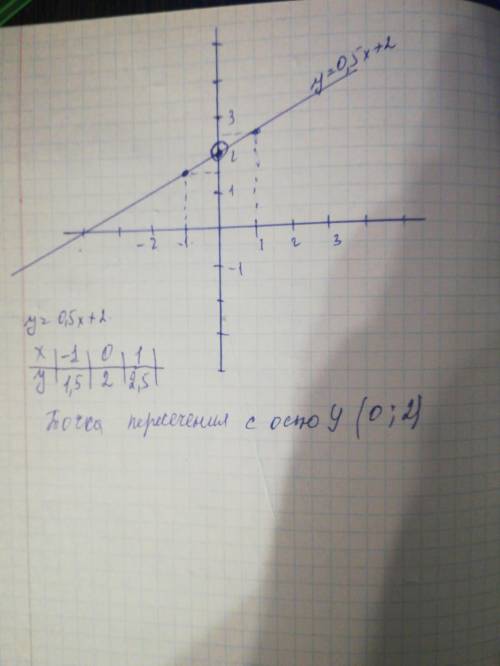 y=0,5x+2
3
2
1
-2 -1 1 2 3
-1
y=0,5x+2
x -1 0 1
y 1,5 2 2,5
Точка пересечения с осью y (0;2)